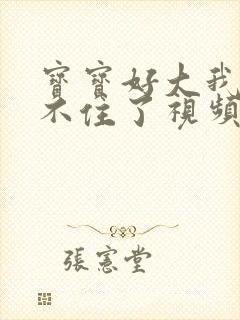 寶寶好大我
不住了視頻
張憲堂